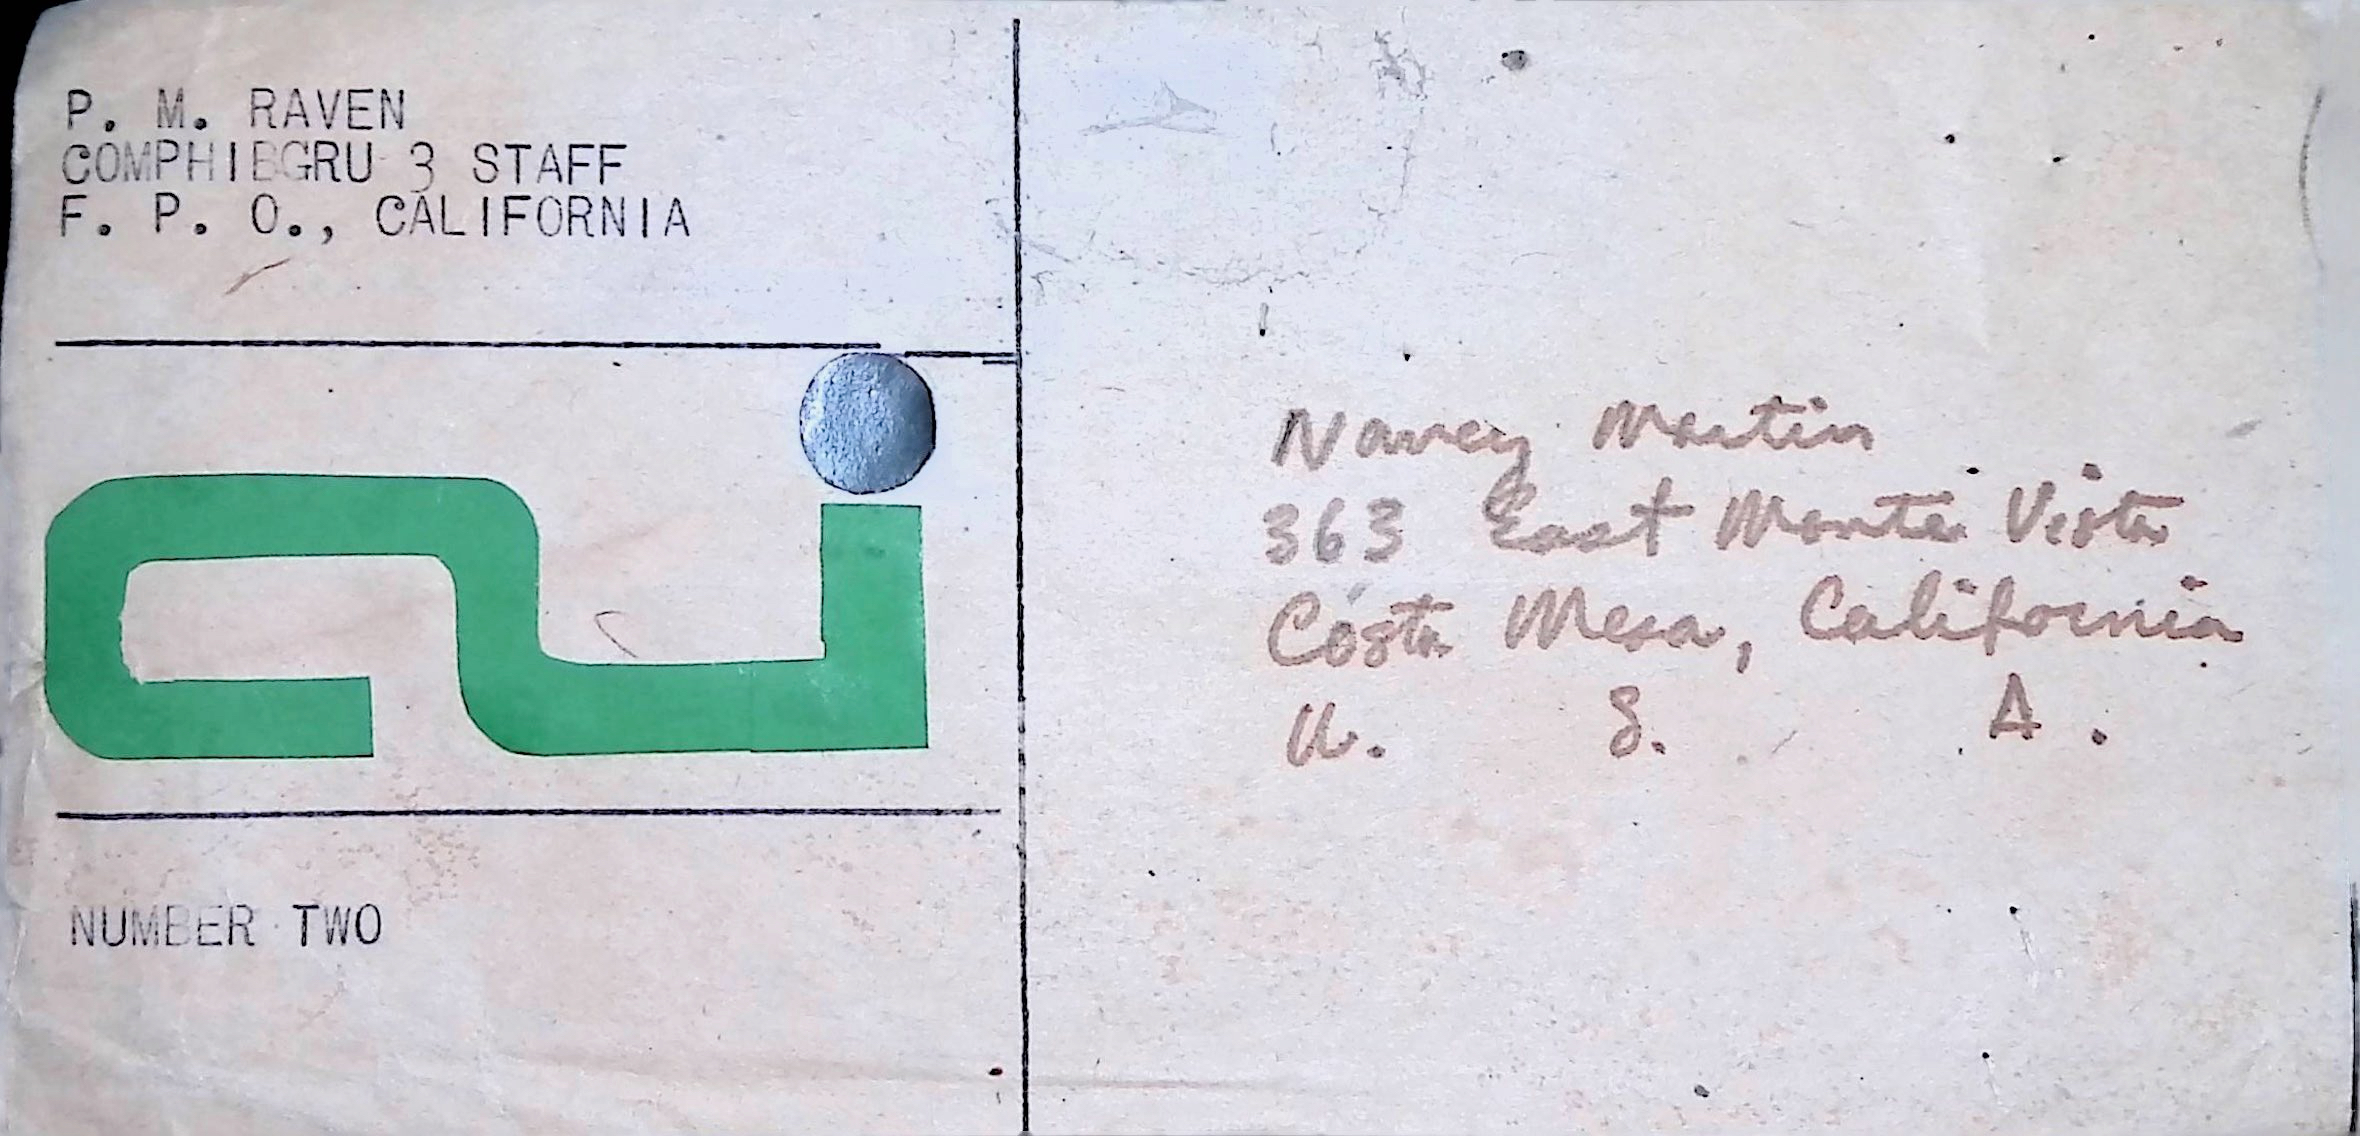 P. M. RAVEN
COMPHIBGRU 3 STAFF
F. P. O., CALIFORNIA
NUMBER TWO
Nancy Martin
363 East Monte Vista
Costa Mesa, California
U. S. A.